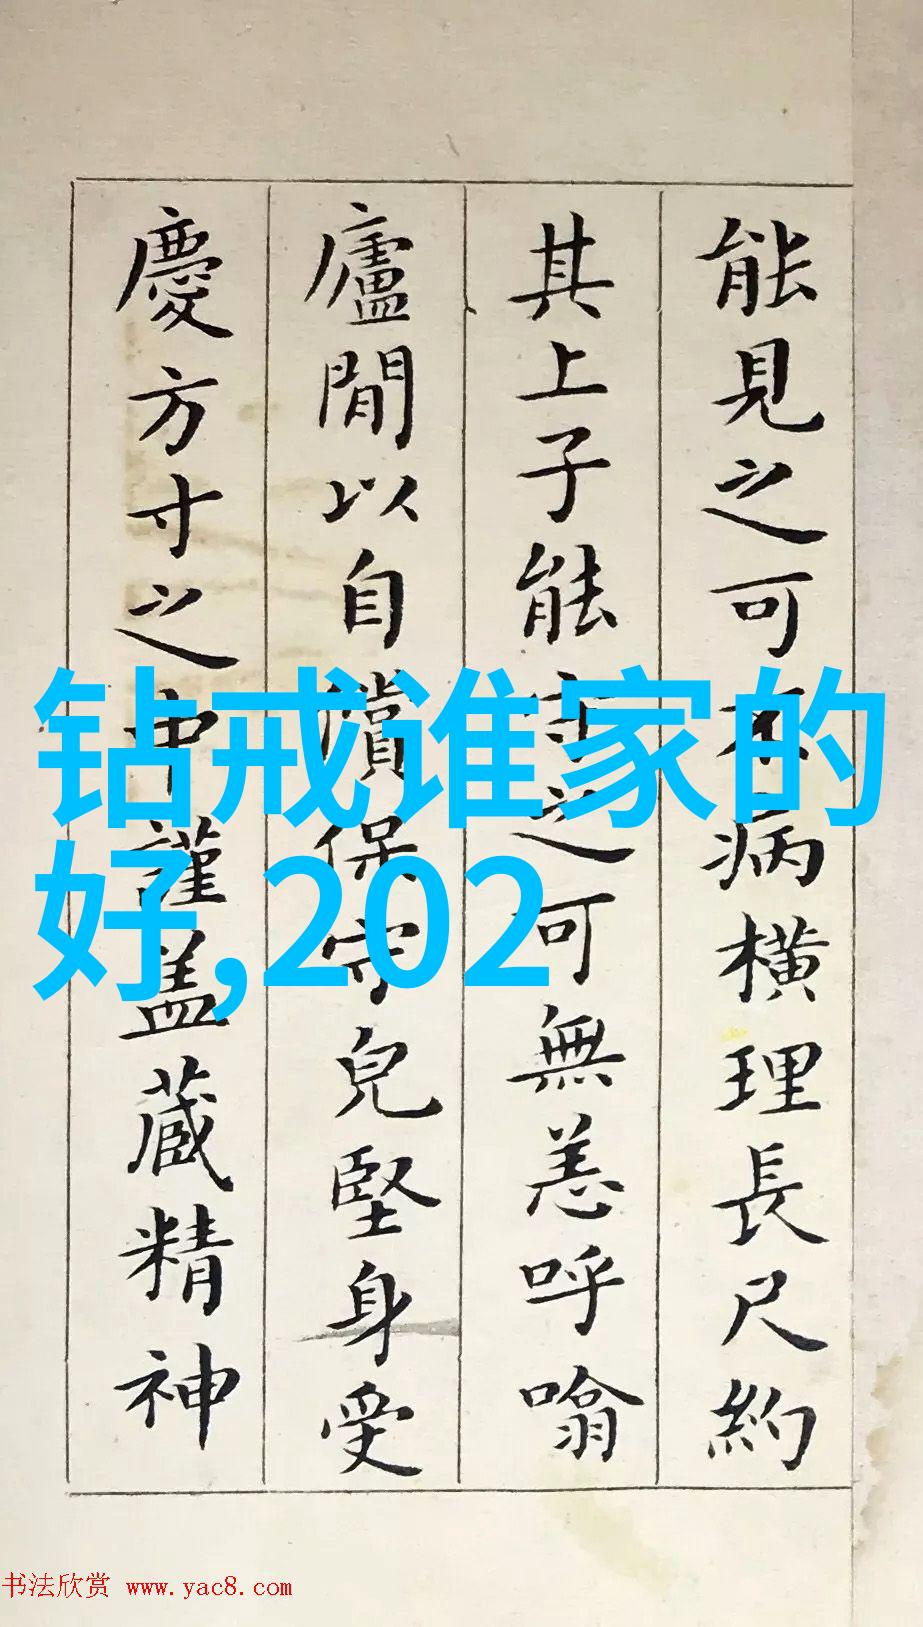 能見之可不病橫理長尺約
其上子能守之可無恙呼噏
廬間以自償保守皃堅身受
慶方寸之中謹盖藏精神
钻戒谁家的
好,202
书法欣赏 www.yac8.com